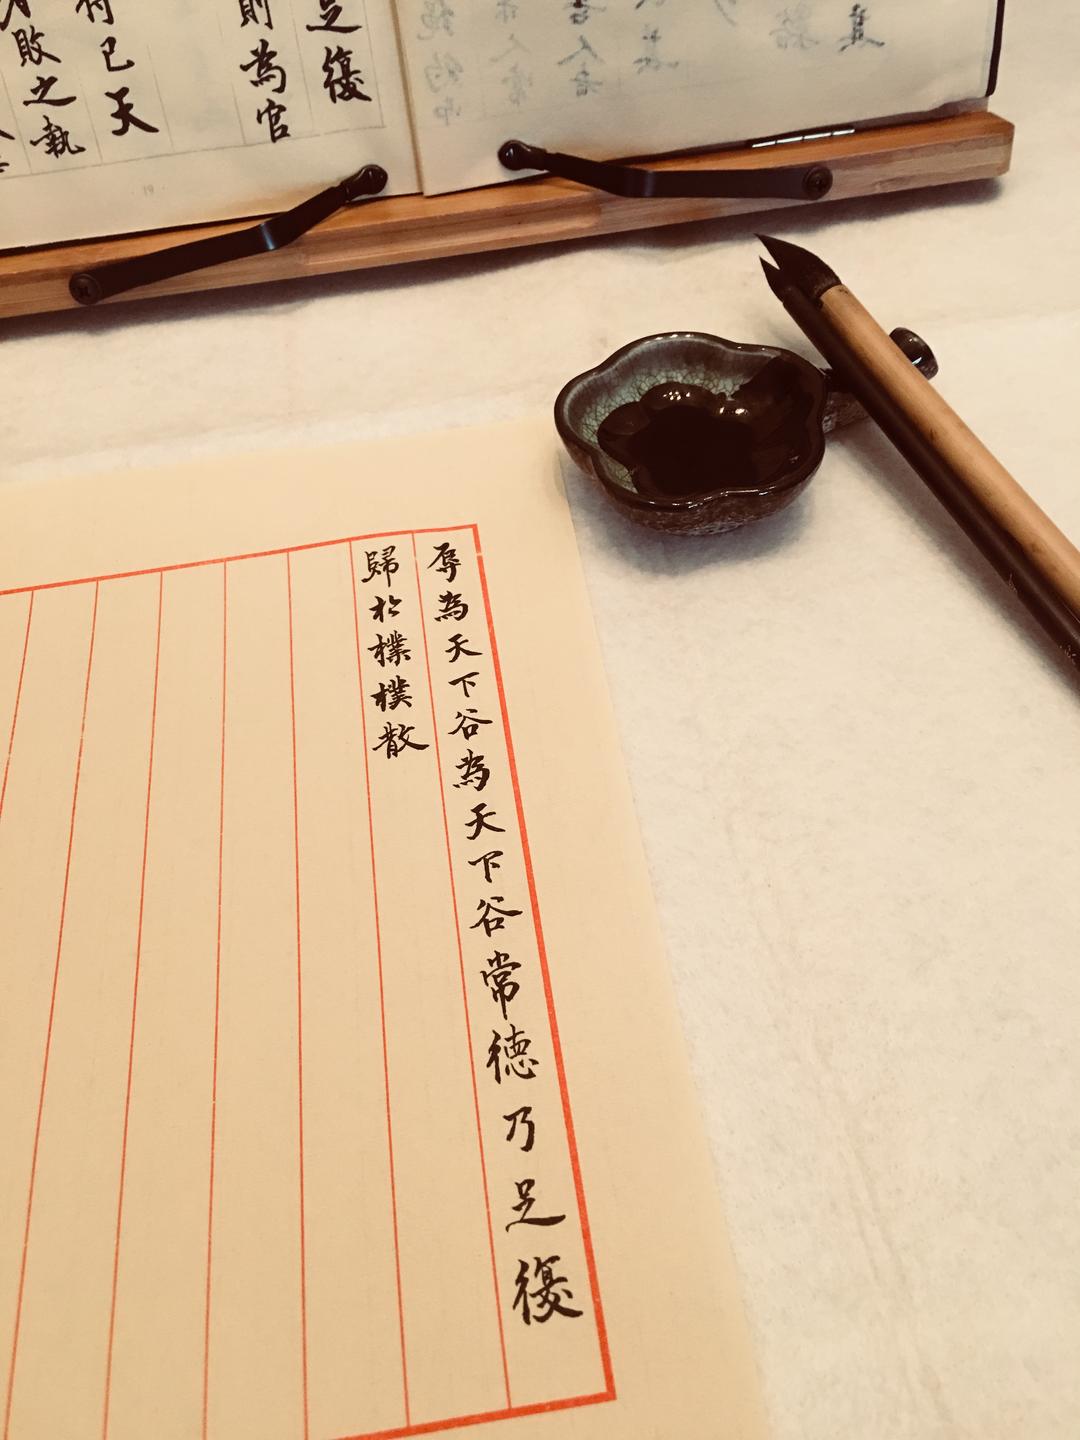 足復
則為官
得已天
敗之執
辱為天下谷為天下谷常德乃足復
歸於樸樸散